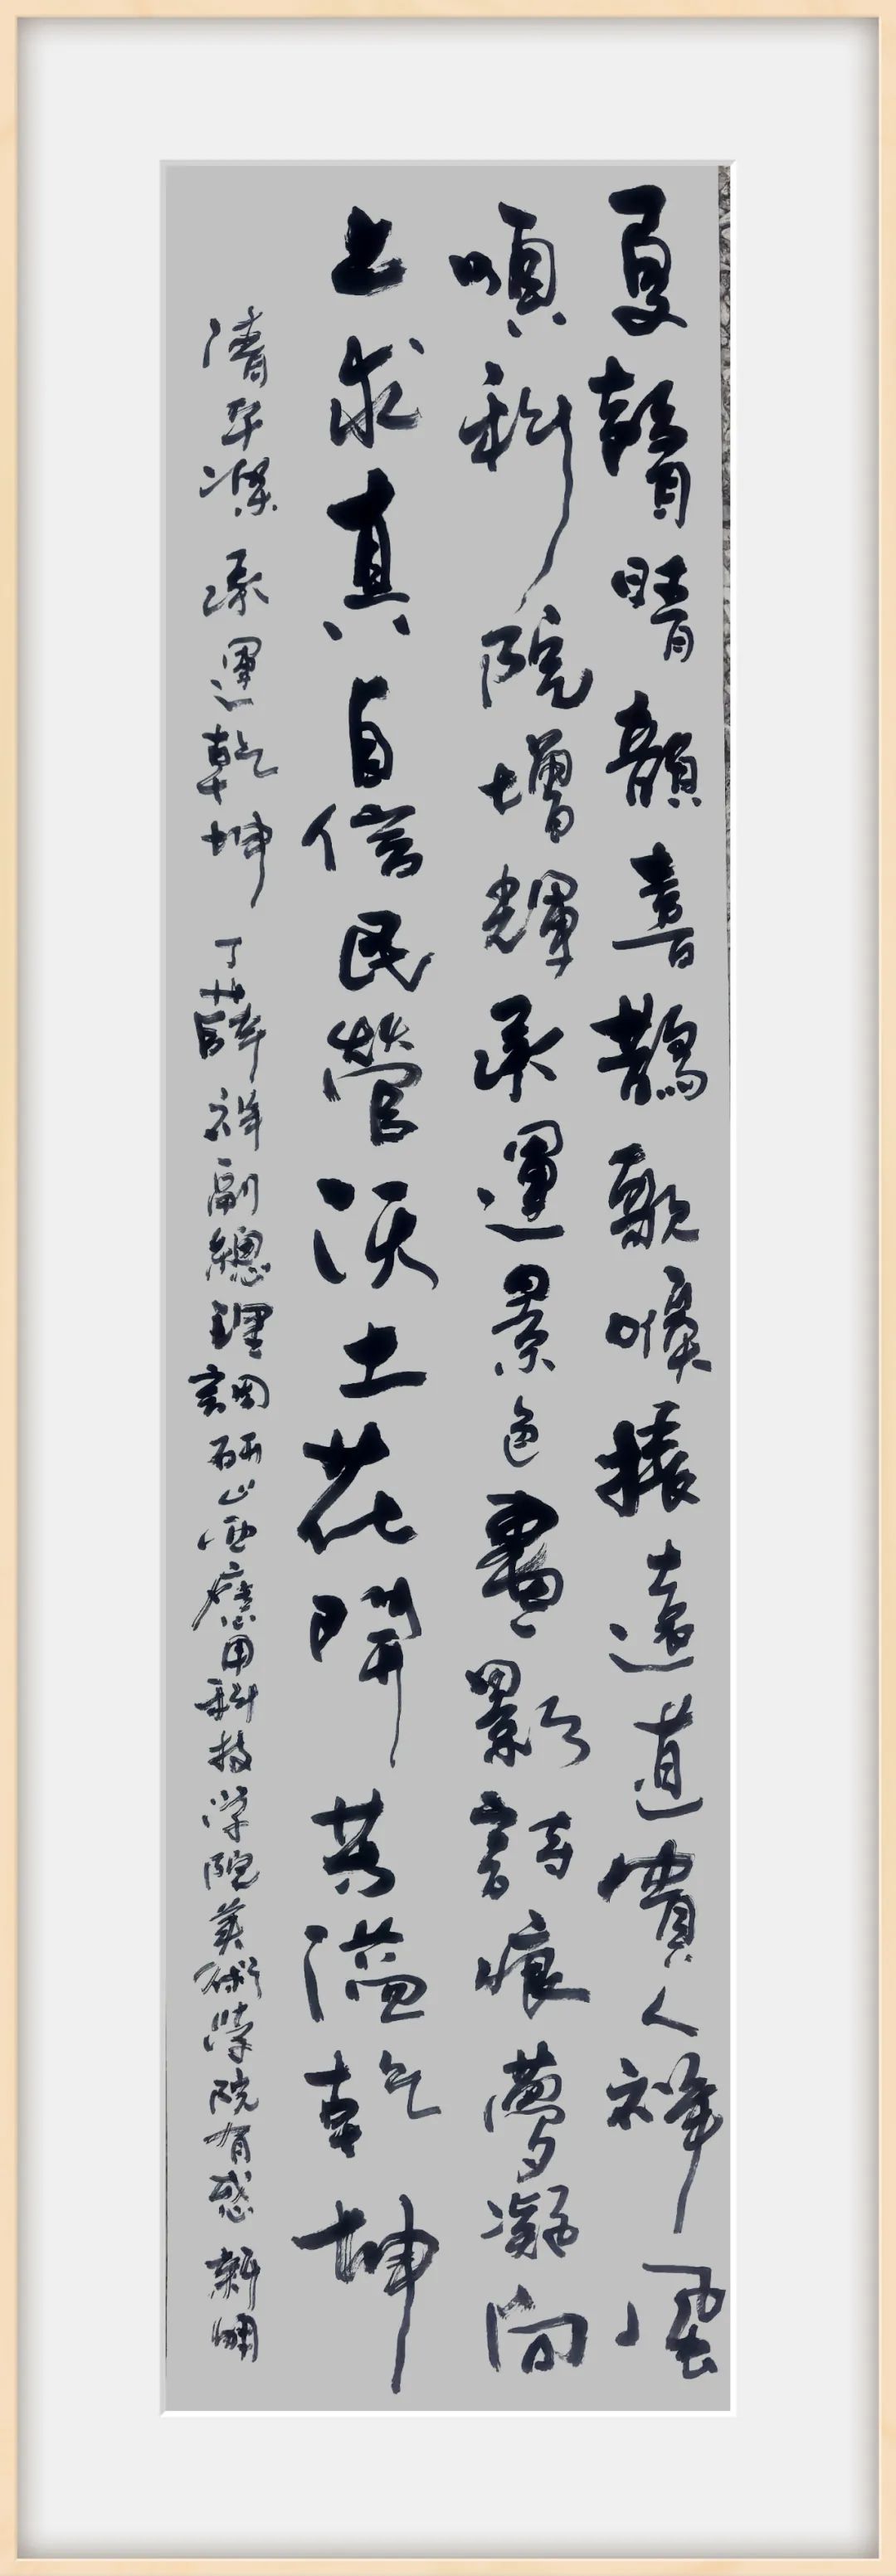 夏晴韻喜鵲歌喉振遠道貴人祥風
順科院增輝承運景色畫影詩痕夢凝向
上求真貞信民營沃土花開芳溢乾坤
清平樂 承運乾坤 丁薛祥副總理調研山西應用科技学院美術學院有感 新